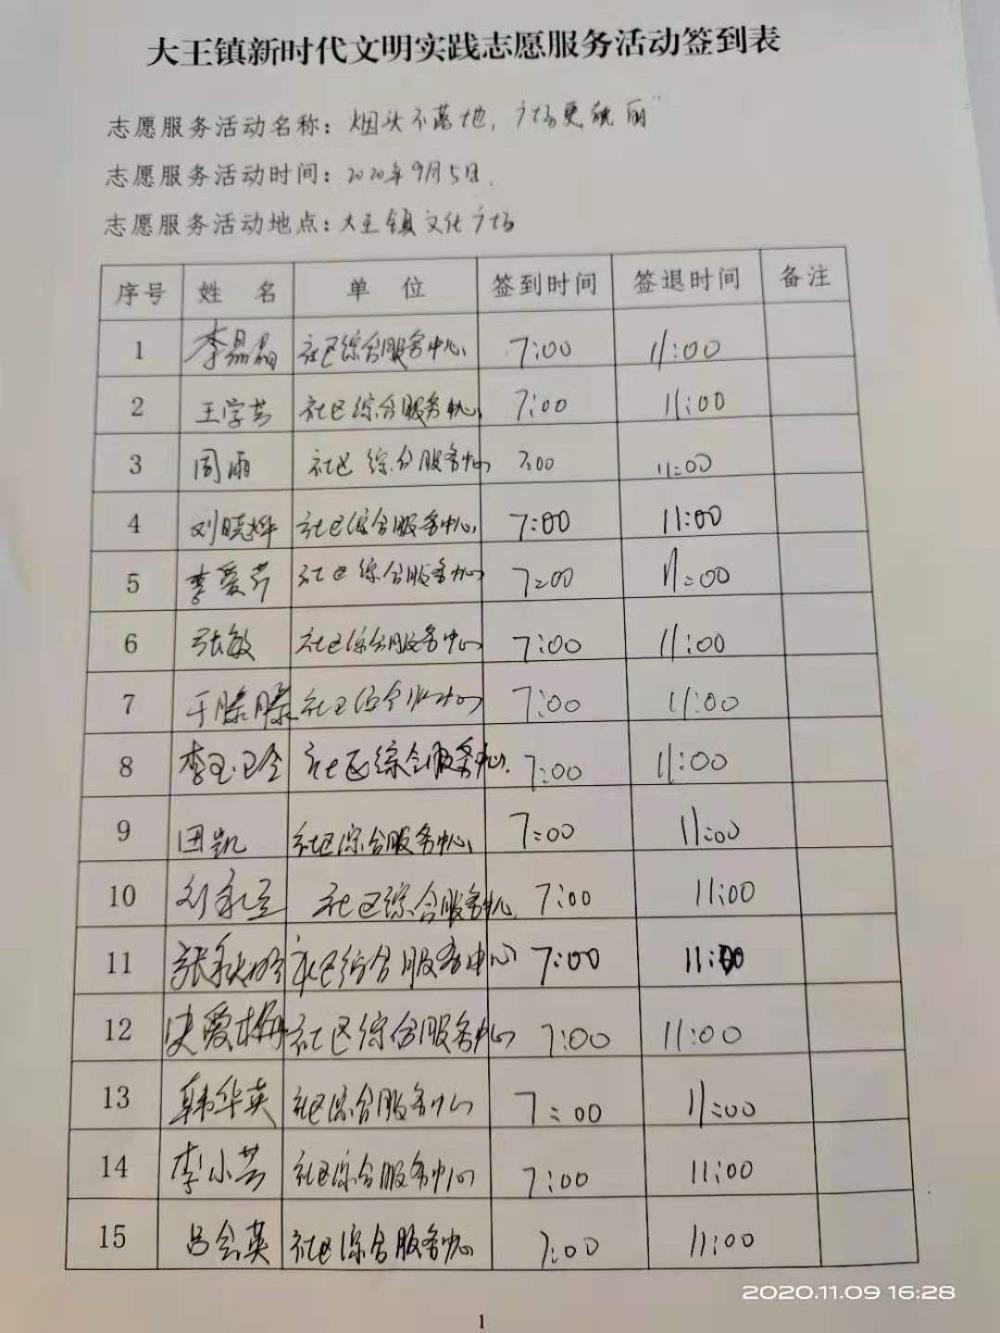 大王镇新时代文明实践志愿服务活动签到表
志愿服务活动名称：烟头不落地，广场更靓丽”
志愿服务活动时间：2020年9月5日.
志愿服务活动地点：大王镇文化广场
序号 姓 名 单 位 签到时间 签退时间 备注
1 李晶晶 社区综合服务中心 7:00 11:00
2 王学芸 社区综合服务中心 7:00 11:00
3 周雨 社区综合服务中心 7:00 11:00
4 刘晓烨 社区综合服务中心 7:00 11:00
5 李爱芹 社区综合服务中心 7:00 11:00
6 张敏 社区综合服务中心 7:00 11:00
7 于滕滕 社区综合服务中心 7:00 11:00
8 李卫 社区综合服务中心. 7:00 11:00
9 田凯 社区综合服务中心 7:00 11:00
10 刘永 社区综合服务中心 7:00 11:00
11 张秋 社区综合服务中心 7:00 11:00
12 史爱梅 社区综合服务中心 7:00 11:00
13 韩华英 社区综合服务中心 7:00 11:00
14 李小芸 社区综合服务中心 7:00 11:00
15 吕会英 社区综合服务中心 7:00 11:00
2020.11.09 16:28
1